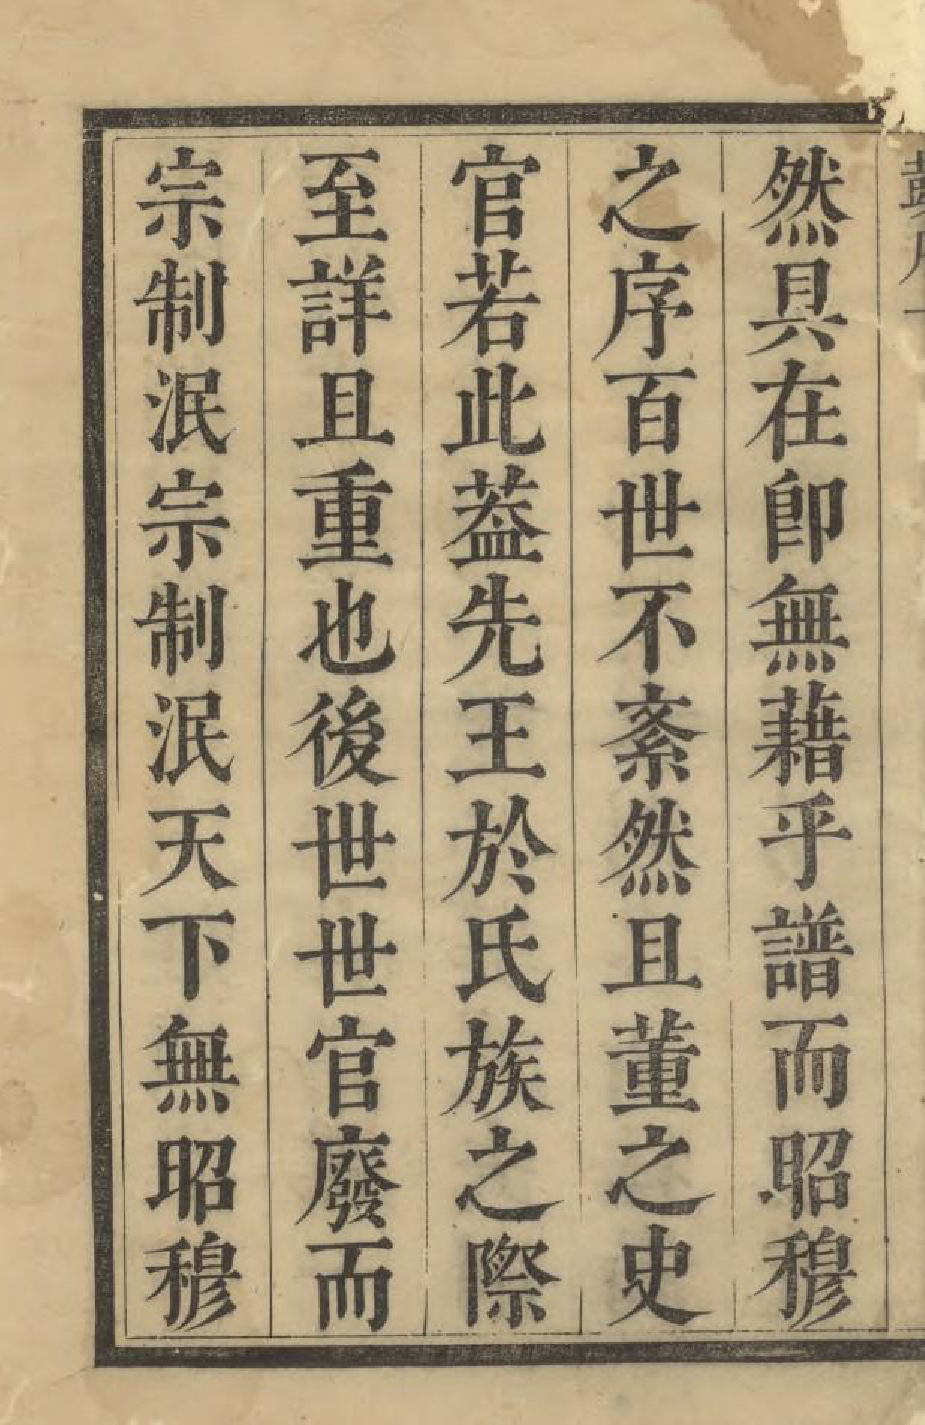 然具在卽無藉乎譜而昭穆
之序百世不紊然且董之史
官若此葢先王於氏族之際
至詳且重也後世世官廢而
宗制泯宗制泯天下無昭穆